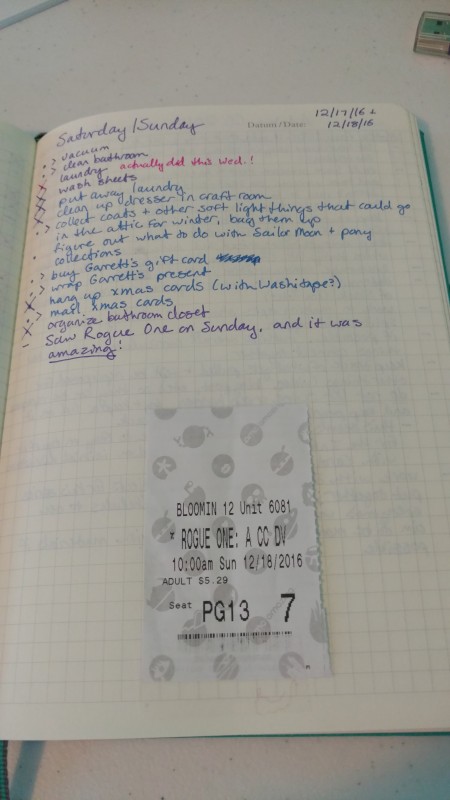 12/17/16 +
Datum / Date: 12/18/16
Saturday / Sunday
• > vacuum
• > clean bathroom
x laundry actually did this Wed.!
x wash sheets
x put away laundry
x clean up dresser in craft room
• > collect coats + other soft light things that could go
in the attic for winter, bag them up
• figure out what to do with Sailor Moon + pony
collections
• > buy Garrett's gift card
• > wrap Garrett's present
x hang up xmas cards (with washi tape?)
• > mail xmas cards
x organize bathroom closet
- Saw Rogue One on Sunday, and it was
amazing!
BLOOMIN 12 Unit 6081
* ROGUE ONE: A CC DV
10:00am Sun 12/18/2016
ADULT $5.29
Seat PG13 7